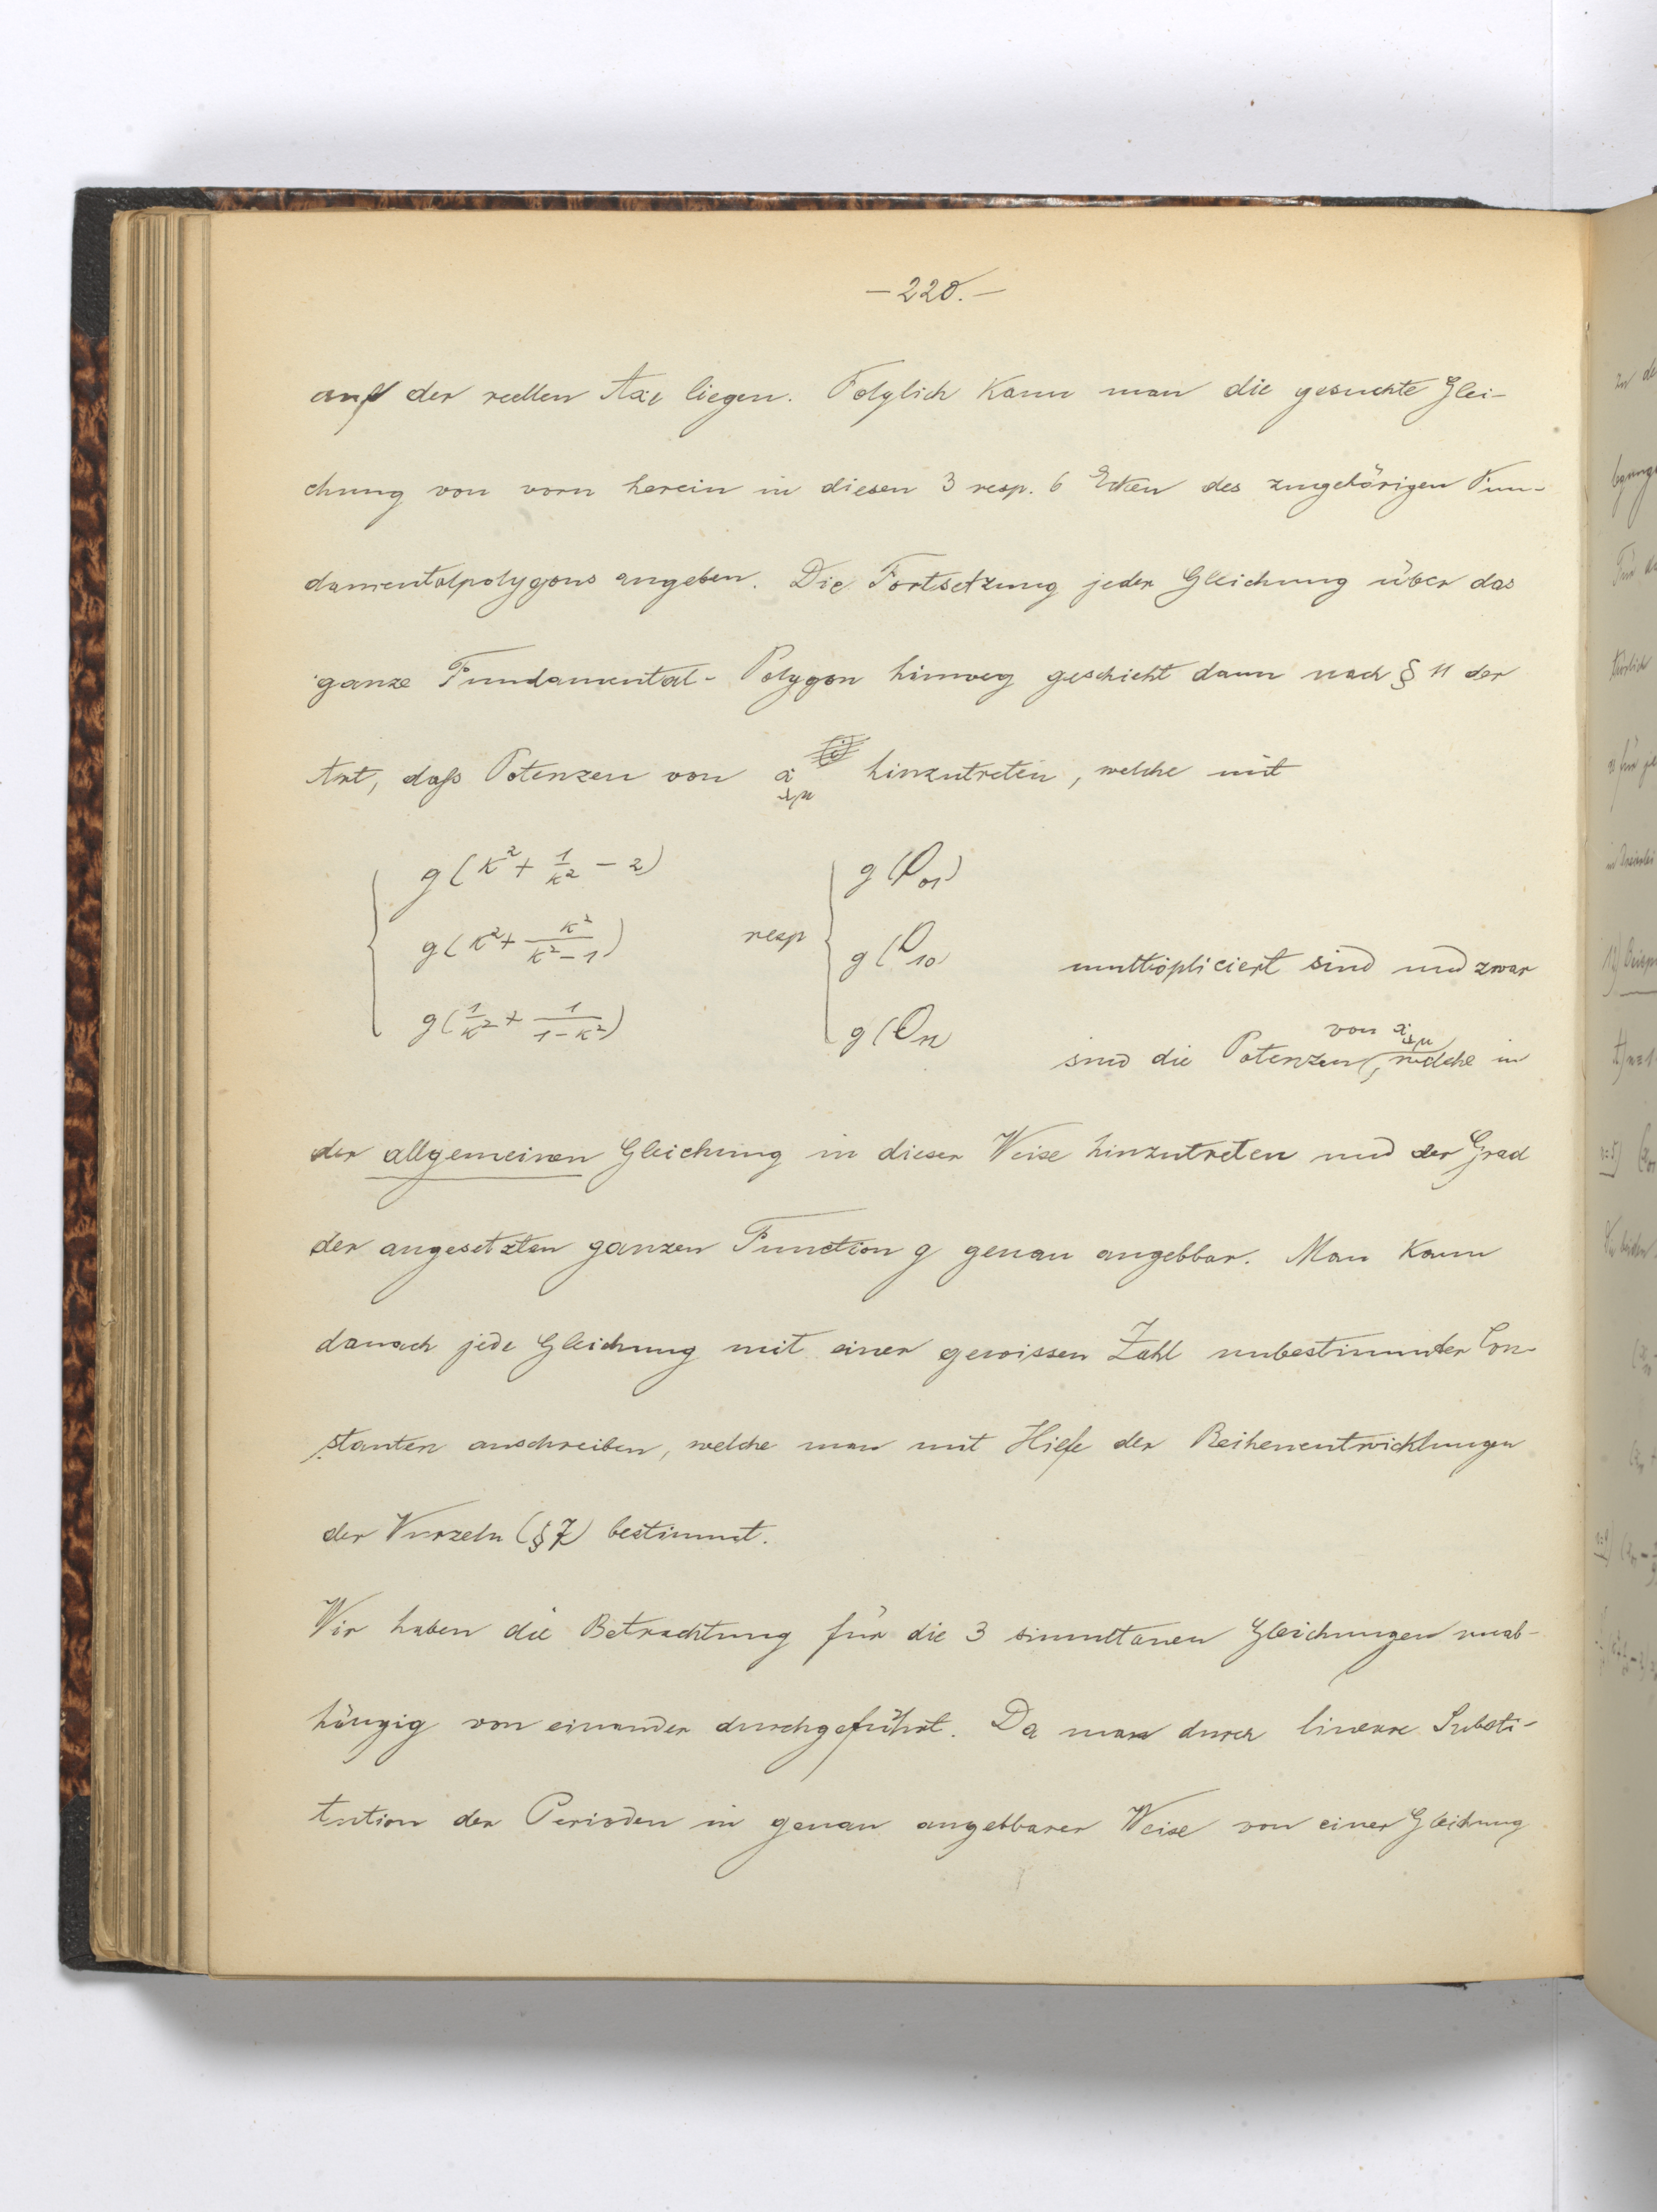 — 220. —
auf der reellen Axe liegen. Folglich kann man die gesuchte Glei-
chung von vorn herein in diesen 3 resp. 6 Ecken des zugehörigen Fun-
damentalpolygons angeben. Die Fortsetzung jeder Gleichung über das
ganze Fundamental- Polygon hinweg geschieht dann nach § 11 der
Art, daſs Potenzen von x_{λμ} hinzutreten, welche mit
g(κ² + 1/κ² − 2)
g(κ² + κ²/(κ²−1))
g(1/κ² + 1/(1−κ²))
resp
g(
g(
g(
multipliciert sind und zwar
sind die Potenzen von x_{λμ}, welche in
der allgemeinen Gleichung in dieser Weise hinzutreten und der Grad
der angesetzten ganzen Function g genau angebbar. Man kann
danach jede Gleichung mit einer gewissen Zahl unbestimmter Con-
stanten anschreiben, welche man mit Hilfe der Reihenentwicklungen
der Wurzeln (§ 7) bestimmt.
Wir haben die Betrachtung für die 3 simultanen Gleichungen unab-
hängig von einander durchgeführt. Da man durch lineare Substi-
tution der Perioden in genau angebbarer Weise von einer Gleichung